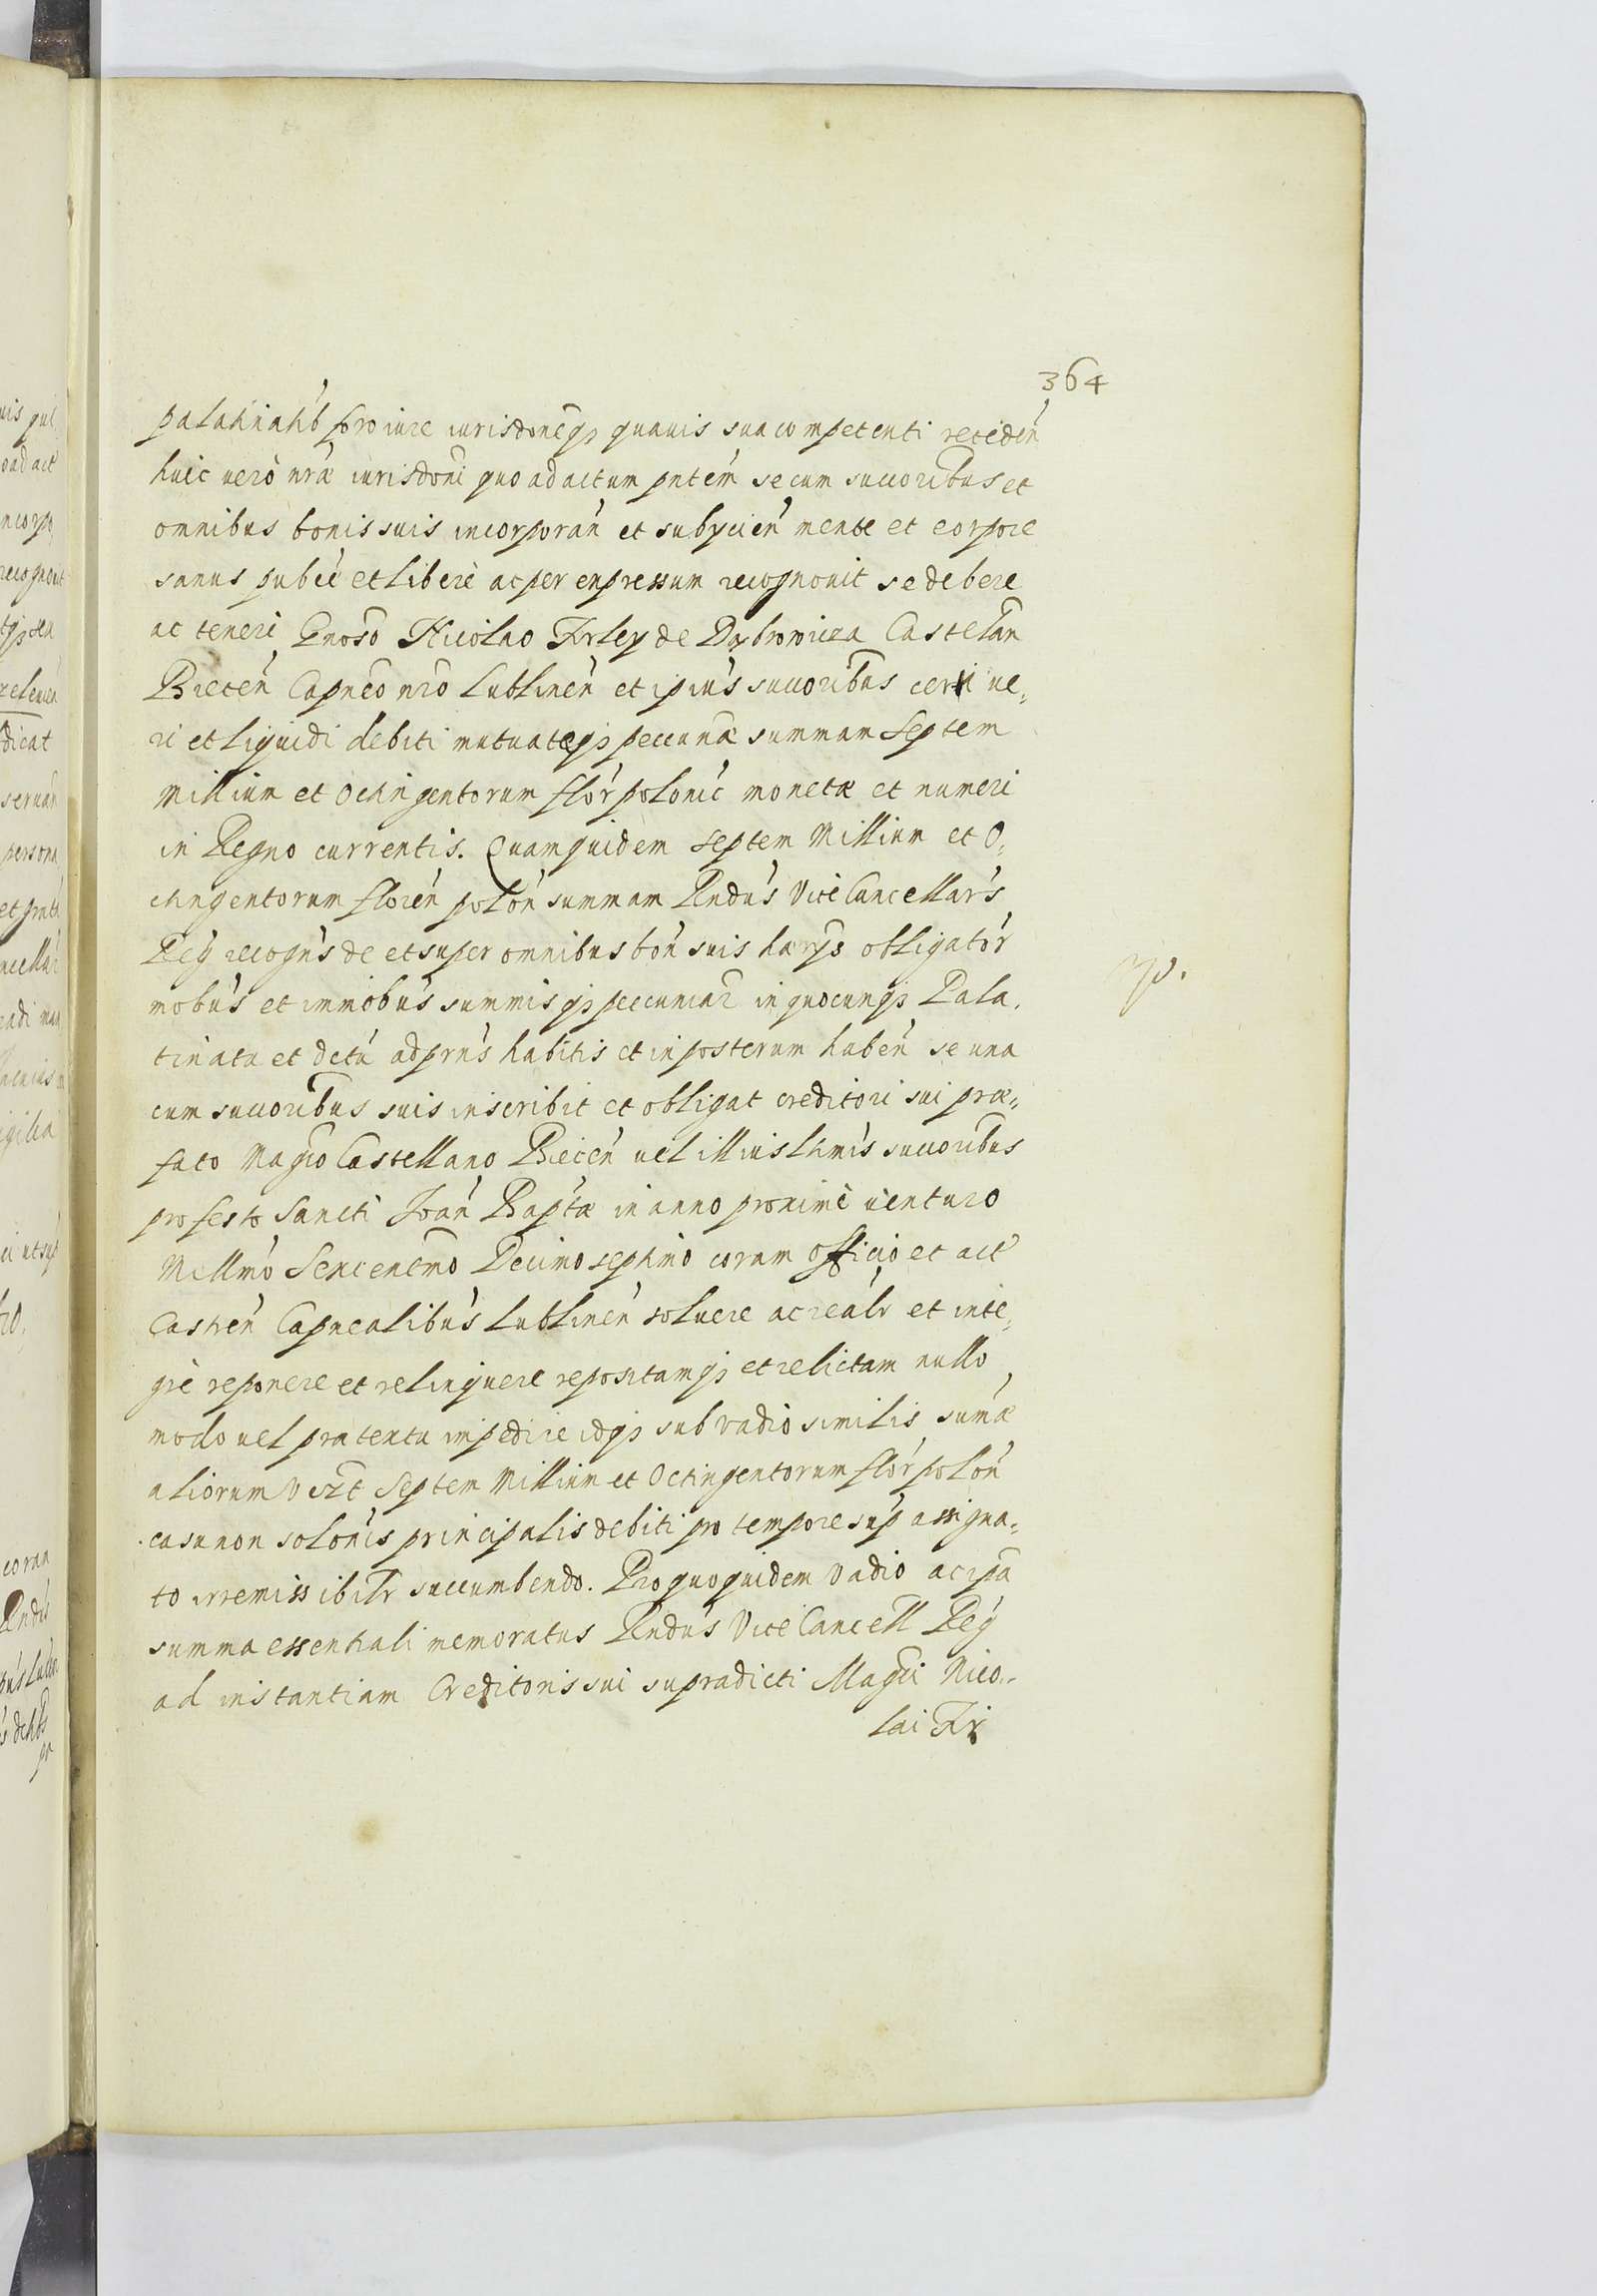 364
palatinatib foro iure iurisdoneqз quauis sua competenti receden
huic uero nrae iurisdoni quo ad actum pntem se cum succoribus et
omnibus bonis suis incorporan et subycien mente et corpore
sanus publice et libere ac per expressum recognouit se debere
ac teneri Gnoso Nicolao Firley de Dąbrowica Castelan
Biecen Capneo nro Lublinen et ipius succoribus certi ue„
ri et liquidi debiti mutuateqз peccuniae summam Septem
Millium et Octingentorum flor polonic monetae et numeri
in Regno currentis. Quamquidem septem Millium et O„
ctingentorum floren polon summam Rndus Vice Cancellars
Reg recogns de et super omnibus bon suis haerys obligator
mobus et immobus summis qз peccuniar in quocunqз Pala„
tinatu et dctu ad prns habitis et in posterum haben se una
cum succoribus suis inscribit et obligat creditori sui prae„
fato Magco Castellano Biecen uel illius ltmis succoribus
pro festo Sancti Joan Baptae in anno proxime uenturo
Mellmo Sexcenemo Decimo septimo coram Officio et act
Castren Capnealibus Lublinen soluere ac realr et inte„
gre reponere et relinquere repositamqз et relictam nullo
modo uel praetextu impedire idqз sub vadio similis sumae
aliorum Vszt Septem Millium et Octingentorum flor polon
casu non solonis principalis debiti pro tempore sup assigna„
to irremissibilr succumbendo. Pro quoquidem Vadio ac ipa
summa essentiali memoratus Rndus Vice Cancell Reg
ad instantiam Creditoris sui supradicti Magci Nico„
lai Fir